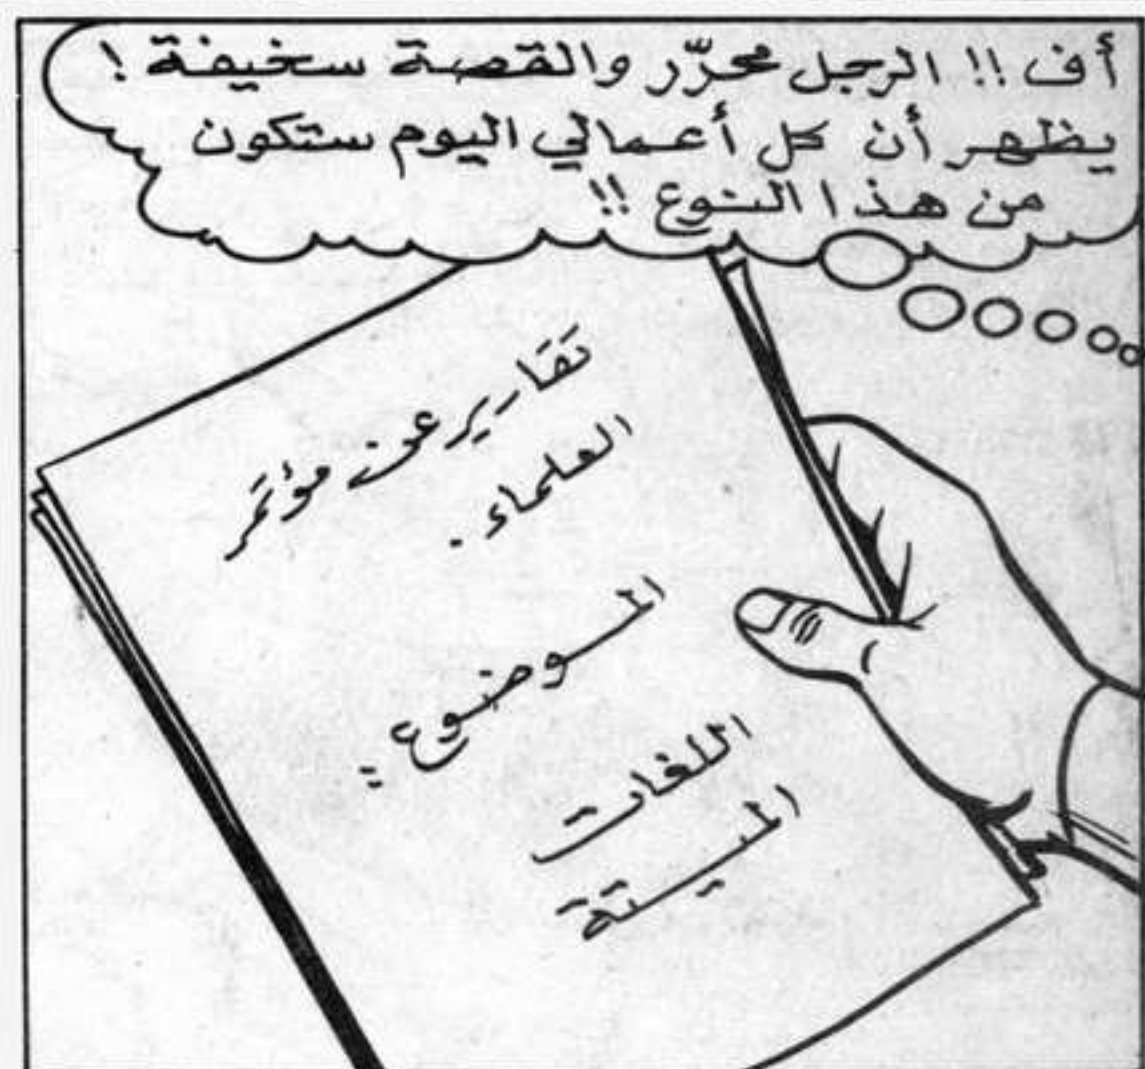 أف !! الرجل محرّر والقصة سخيفة !
يظهر أن كل أعمالي اليوم ستكون
من هذا النوع !!
تقارير عن مؤتمَر
العلماء .
الموضوع :
اللغات
الميتة